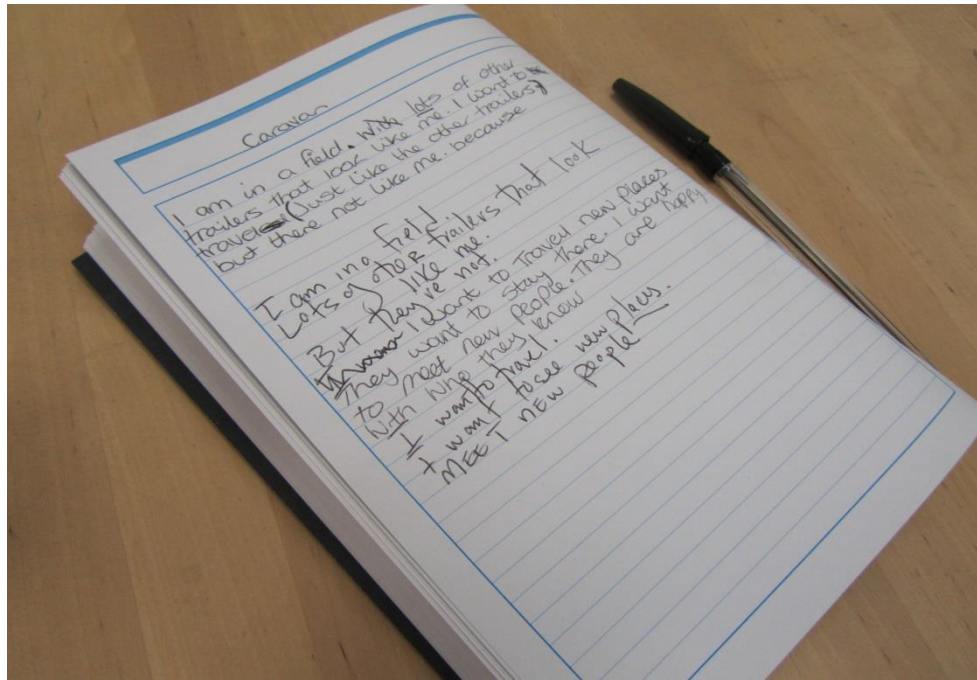 Caravan
I am in a field. With lots of other
trailers that look like me. I want to
travel (Just like the other trailers)
but there not like me. because
I am in a field
Lots of other trailers that look
like me.
But they've not.
I want to Travell new places
They want to stay there. I want
to meet new people. They are happy
with who they know
I want to travel.
I want to see new places.
MEET NEW people